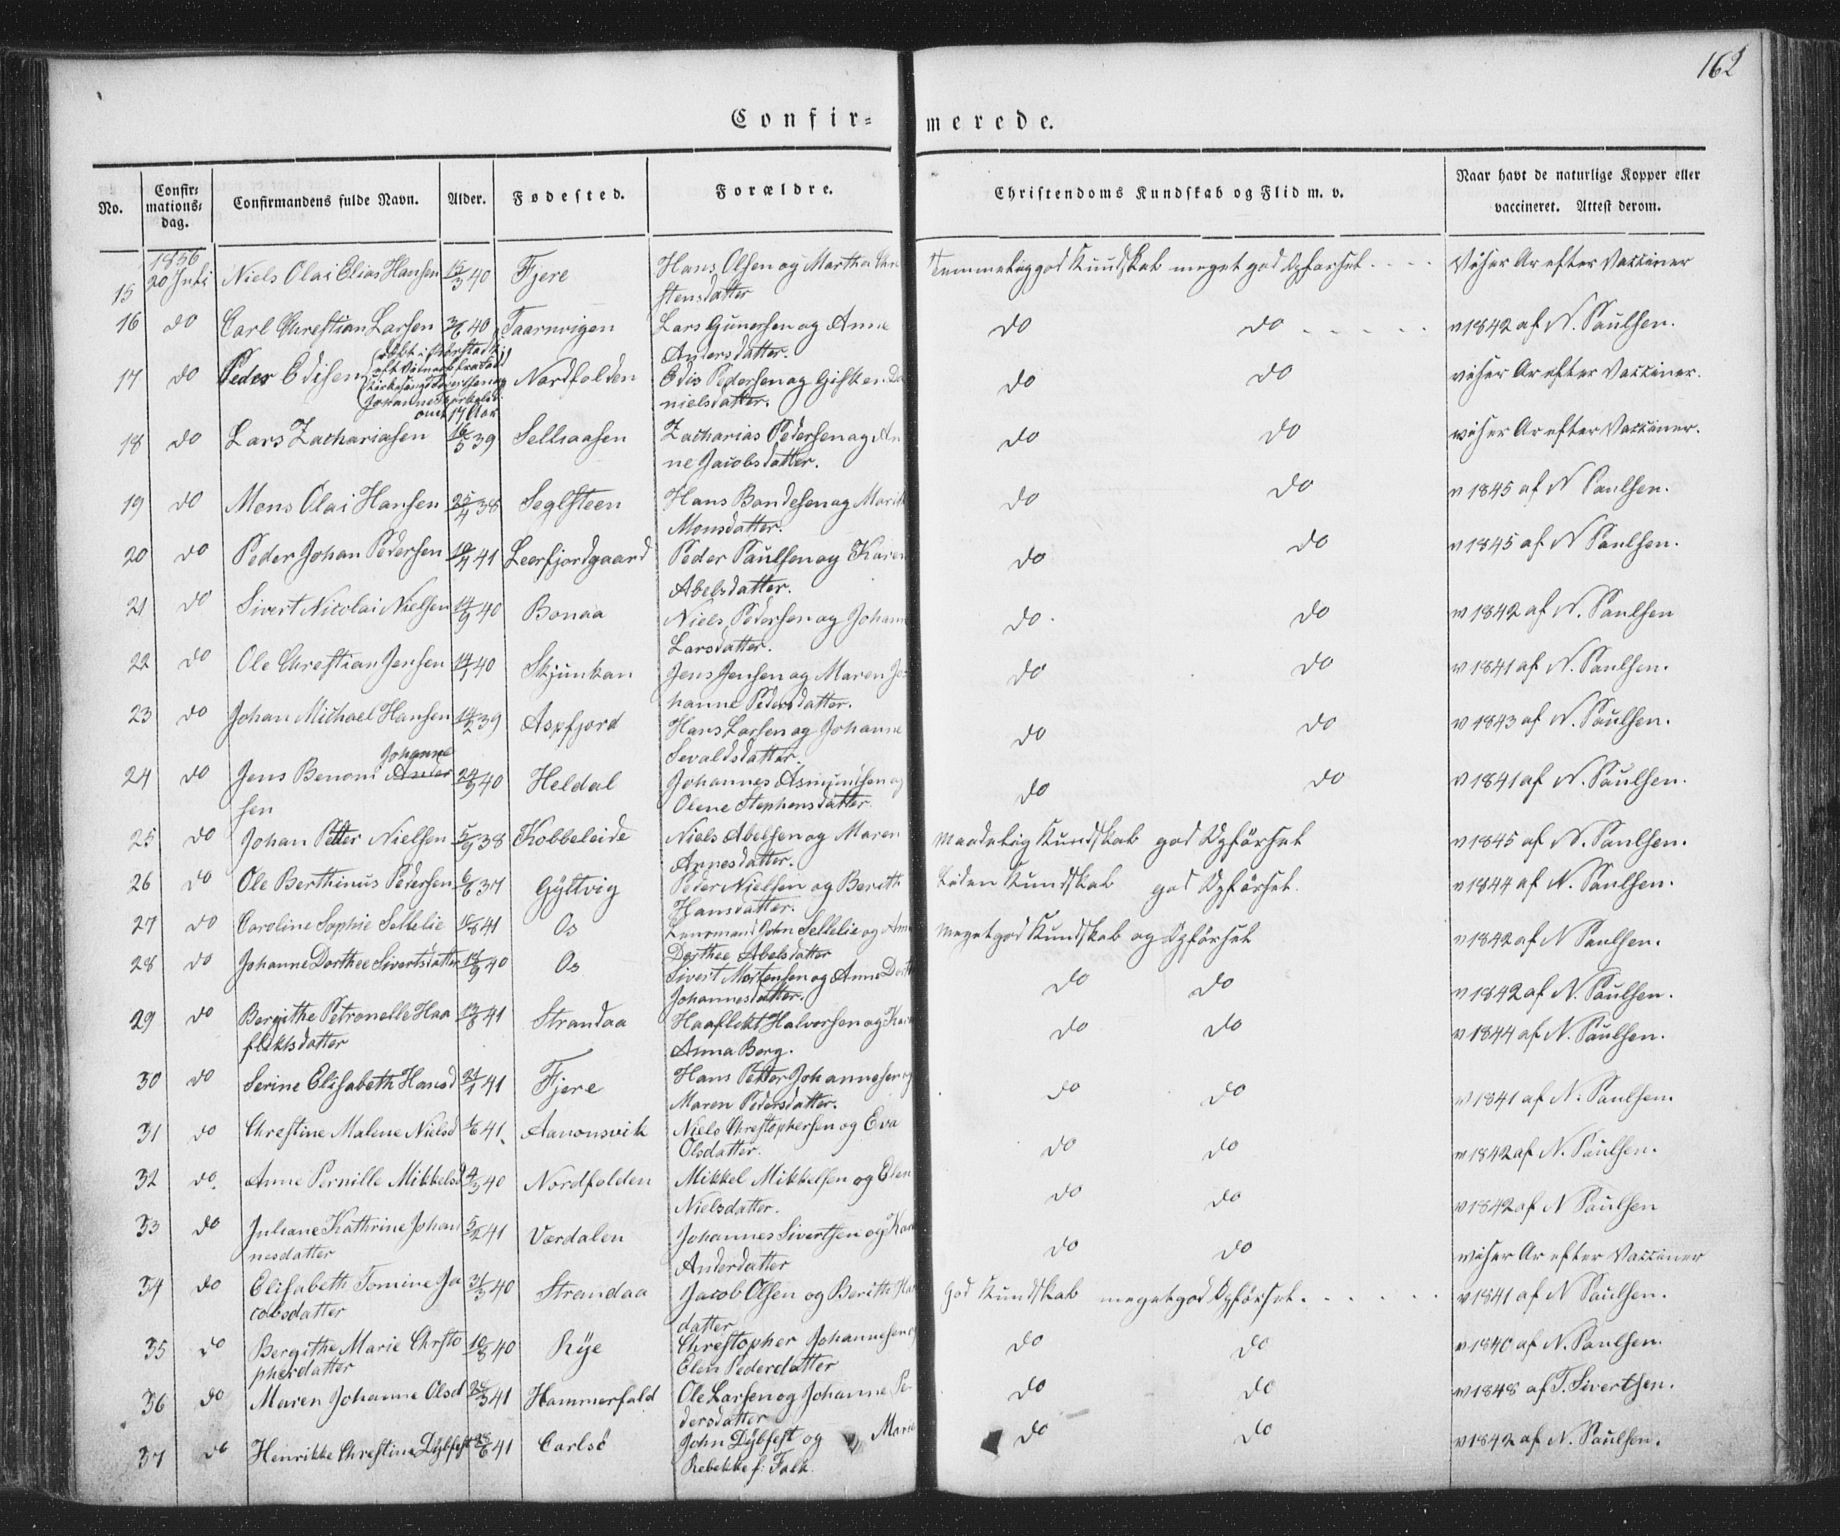 162
Confir= merede.
No. Confir= mations= dag. Confirmandens fulde Navn. Alder. Fødested. Forældre. Christendoms Kundskab og Flid m. v. Naar havt de naturlige Kopper eller vaccineret. Attest derom.
1856
15 20 Juli Niels Olai Elias Hansen 40 Fjere Hans Olsen og Martha Temmelig god Kundskab meget god Opførsel viser Ar efter Vacciner
stensdatter
16 do Carl Christian Larsen 40 Taarnvigen Lars Gunersen og Anne do do v 1842 af N. Paulsen.
Andersdatter.
17 do Peder Edisen Nordfolden Edis Pedersen og Gisken Da do do viser Ar efter Vacciner.
nielsdatter.
omt 17 Aar
18 do Lars Zachariasen 16/5 39 Sellsaasen Zacharias Pedersen og An do do viser Ar efter Vacciner.
ne Jacobsdatter.
19 do Mons Olai Hansen 25/4 38 Seglsteen Hans Bondesen og Marit do do v 1845 af N Paulsen.
Monsdatter.
20 do Peder Johan Pedersen 41 Leerfjordgaard Peder Paulsen og Karen do do v 1845 af N Paulsen.
Abelsdatter.
21 do Sivert Nicolai Nielsen 14/9 40 Bonaa Niels Pedersen og Johann do do v 1842 af N. Paulsen
Larsdatter.
22 do Ole Christian Jensen 40 Skjunkan Jens Jensen og Maren Jo do do v 1841 af N. Paulsen.
hanne Pedersdatter.
23 do Johan Michael Hansen 14/2 39 Aspfjord Hans Larsen og Johanne do do v 1843 af N. Paulsen.
Sevaldsdatter.
Johanne
24 do Jens Benoni Ander 24/9 40 Heldal Johannes Asmundsen og do do v 1841 af N. Paulsen.
sen Olene Stephensdatter.
25 do Johan Petter Nielsen 5/9 38 Kobbeleide Niels Abelsen og Maren Maadelig Kundskab god Opførsel v 1845 af N. Paulsen.
Arnesdatter.
26 do Ole Berthinus Pedersen 6/6 37 Gyltvig Peder Nielsen og Berith Liden Kundskab god Opførsel. v 1844 af N. Paulsen.
Hansdatter.
27 do Caroline Sophie Sellelie 41 Os Lensmand John Sellelie og Ann Meget god Kundskab og Opførsel v 1842 af N Paulsen.
Dorthee Abelsdatter
28 do Johanne Dorthee Sivertsdatter 40 Os Sivert Mortensen og Anne Dorth do do v 1842 af N. Paulsen.
Johannesdatter.
29 do Bergithe Petronelle Haa 13/8 41 Strandaa Haaflekt Halvorsen og Kar do do v 1844 af N. Paulsen.
flektsdatter Anna Berg.
30 do Serine Elisabeth Hansd 21/1 41 Fjere Hans Petter Johannesen og do do v 1841 af N. Paulsen.
Maren Pedersdatter.
31 do Christine Malene Nielsd 41. Aanonsvik Niels Christophersen og Eva do do v 1842 af N. Paulsen.
Olsdatter.
32 do. Anne Pernille Mikkelsd 4/3 40 Nordfolden Mikkel Mikkelsen og Elen do do v 1842 af N Paulsen
Nielsdatter.
33 do Juliane Kathrine Johan 5/2 41 Værdalen Johannes Sivertsen og Kar do do viser Ar efter Vacciner
nesdatter Andersdatter
34 do Elisabeth Tomine Ja 31/3 40 Strandaa Jacob Olsen og Berith Han god Kundskab meget god Opførsel v 1841 af N Paulsen.
cobsdatter datter
35 do Bergithe Marie Chrsto 10/8 40 Rije Christopher Johannesen og do do v 1840 af N. Paulsen.
phersdatter Elen Pedersdatter
36 do Maren Johanne Olsd 41 Hammerfald Ole Larsen og Johanne Pe do do v 1848 af T. Sivertsen.
dersdatter
37 do Henrikke Christine Dybfest 41 Carlsö John Dybfest og Marie do do v 1842 af N. Paulsen.
Rebekke f: Falk.